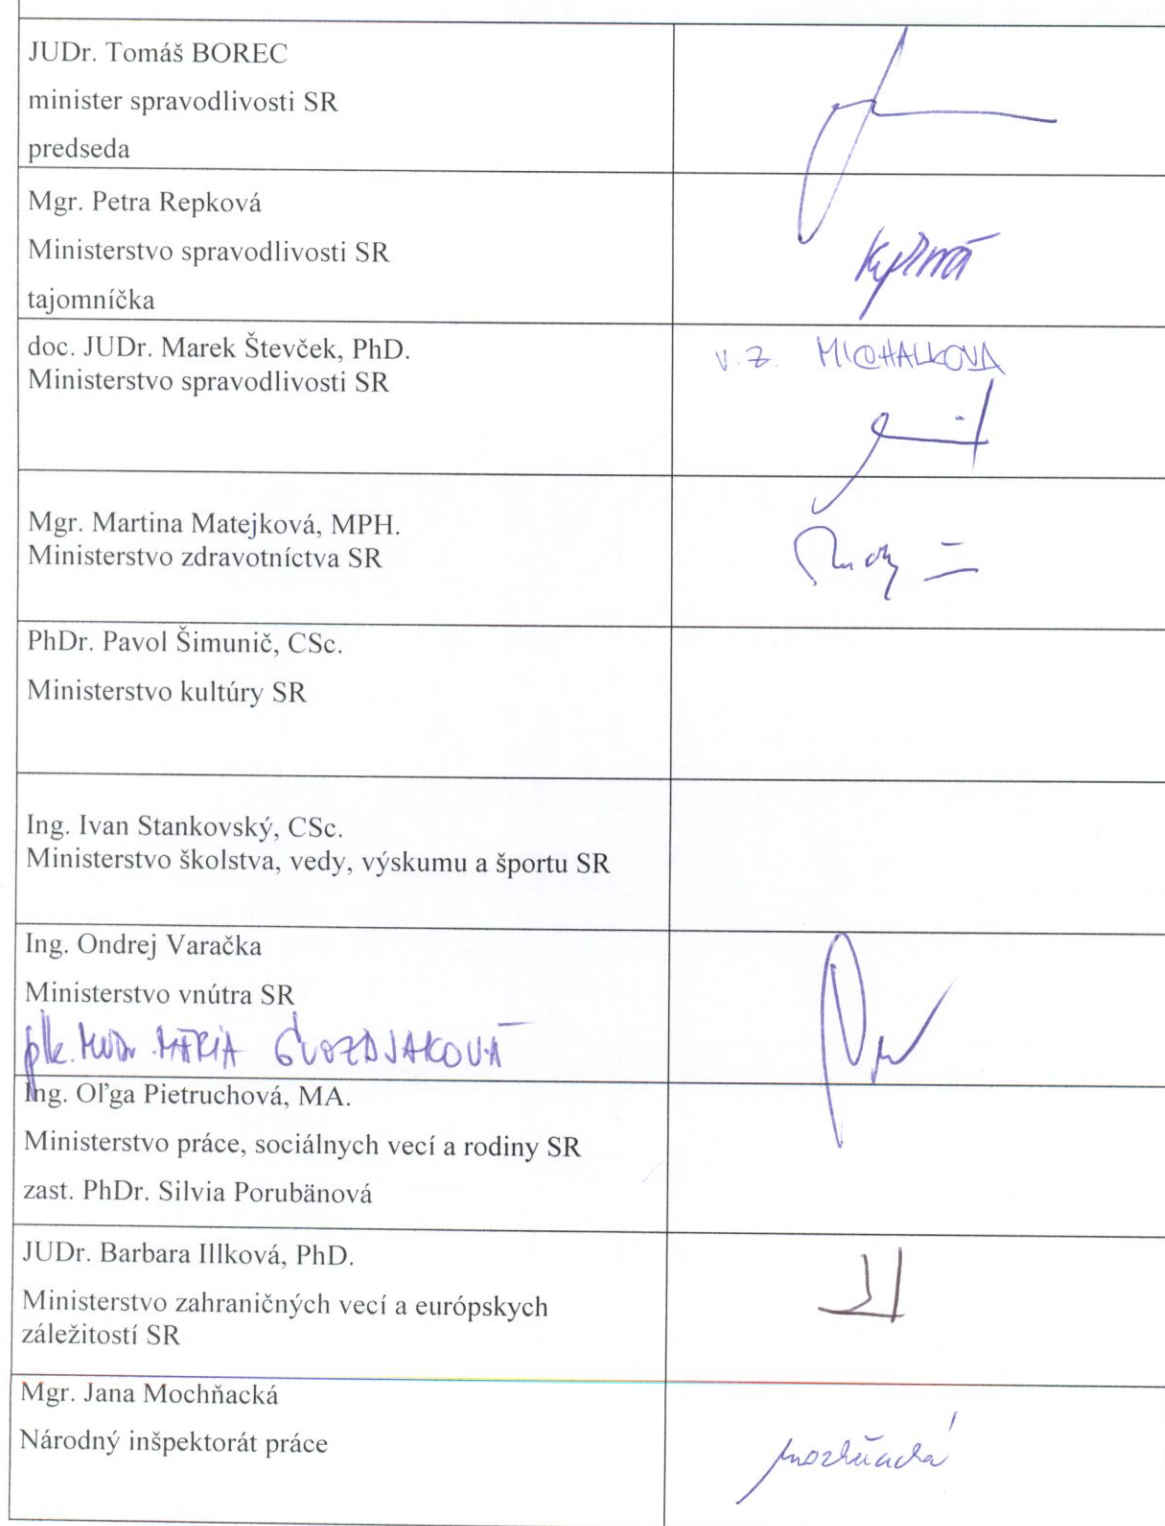 JUDr. Tomáš BOREC
minister spravodlivosti SR
predseda
Mgr. Petra Repková
Ministerstvo spravodlivosti SR
tajomníčka
doc. JUDr. Marek Števček, PhD.
Ministerstvo spravodlivosti SR
v.z. MICHALKOVA
Mgr. Martina Matejková, MPH.
Ministerstvo zdravotníctva SR
PhDr. Pavol Šimunič, CSc.
Ministerstvo kultúry SR
Ing. Ivan Stankovský, CSc.
Ministerstvo školstva, vedy, výskumu a športu SR
Ing. Ondrej Varačka
Ministerstvo vnútra SR
plk. MUDr. MÁRIA GVOZDJAKOVÁ
Ing. Oľga Pietruchová, MA.
Ministerstvo práce, sociálnych vecí a rodiny SR
zast. PhDr. Silvia Porubänová
JUDr. Barbara Illková, PhD.
Ministerstvo zahraničných vecí a európskych
záležitostí SR
Mgr. Jana Mochňacká
Národný inšpektorát práce
mochňacká